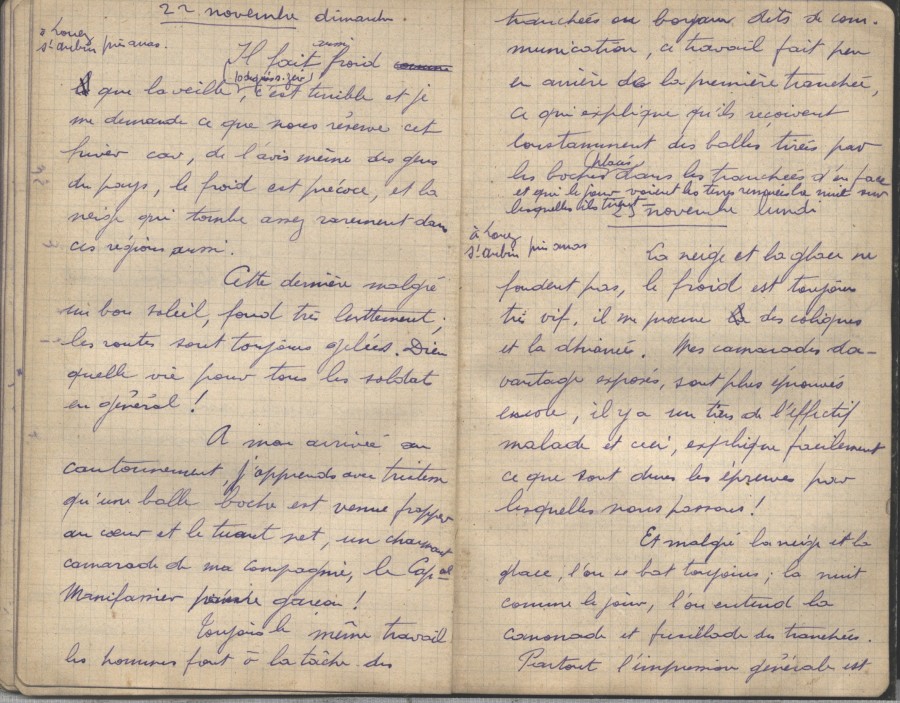 22 novembre dimanche.
à Louez
St Aubin près anas.
Il fait aussi froid
(10 degrés. zéro)
que la veille, c'est terrible et je
me demande ce que nous réserve cet
hiver car, de l'avis même des gens
du pays, le froid est précoce, et la
neige qui tombe assez rarement dans
ces régions aussi.
Cette dernière malgré
un bon soleil, fond très lentement ;
les routes sont toujours gelées. Dieu
quelle vie pour tous les soldats
en général !
A mon arrivée au
cantonnement, j'apprends avec tristesse
qu'une balle boche est venue frapper
au cœur et le tuant net, un charmant
camarade de ma compagnie, le Capal
Manifassier pauvre garçon !
Toujours le même travail
les hommes font à la tâche des
tranchées ou boyaux dits de com-
munication, ce travail fait peu
en arrière de la première tranchée,
ce qui explique qu'ils reçoivent
constamment des balles tirées par
les boches placés dans les tranchées d'en face
et qui le jour voient les terres remuées la nuit sur
lesquelles ils tirent
23 novembre lundi
à Louez
St Aubin près anas
La neige et la glace ne
fondent pas, le froid est toujours
très vif, il me procure des coliques
et la dhiarrée. Mes camarades da-
vantage exposés, sont plus éprouvés
encore, il y a un tiers de l'effectif
malade et ceci, explique facilement
ce que sont dures les épreuves par
lesquelles nous passons !
Et malgré la neige et la
glace, l'on se bat toujours ; la nuit
comme le jour, l'on entend la
canonade et fusillade des tranchées.
Partout l'impression générale est